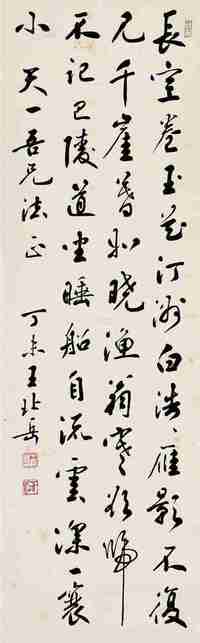 長空卷玉花汀洲白浩浩雁影不復
見千崖暮如曉漁翁寒欲歸
不記巴陵道坐睡船自流雲深一蓑
小 天一吾兄法正 丁未王北岳